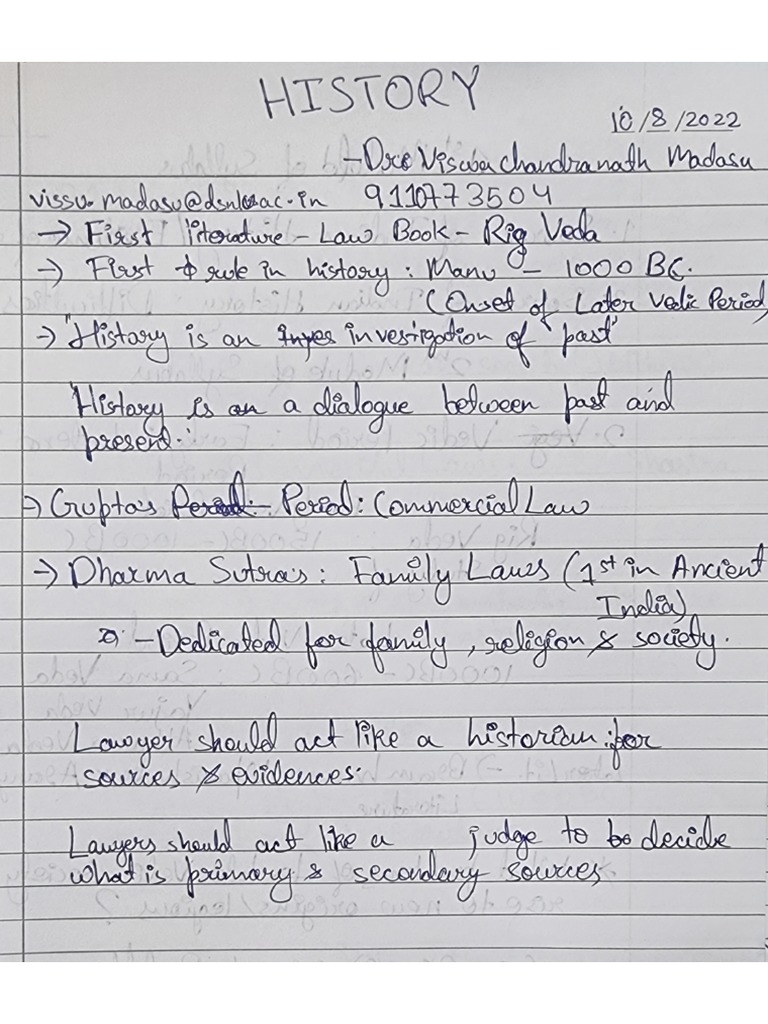 HISTORY
10/8/2022
-Dr. Viswa chandranath Madasu
vissu.madasu@dsnlu.ac.in 9110773504
→ First literature - Law Book - Rig Veda
→ First rule in history : Manu - 1000 BC.
(Onset of Later Vedic Period)
→ "History is an investigation of 'past'
"History is an a dialogue between past and
present."
→ Gupta's Period : Period : Commercial Law
→ Dharma Sutra's : Family Laws (1st in Ancient
India)
- Dedicated for family, religion & society.
Lawyer should act like a historian for
sources & evidences.
Lawyers should act like a judge to be decide
what is primary & secondary sources